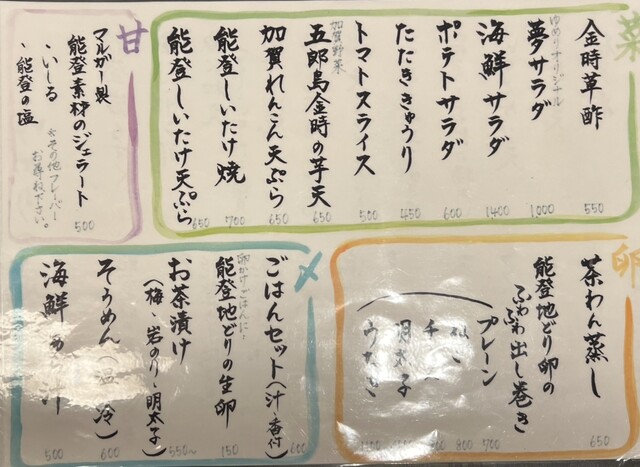 菜
金時草酢 550
ゆめりオリジナル
夢サラダ 1,000
海鮮サラダ 1400
ポテトサラダ 600
たたききゅうり 450
トマトスライス 500
加賀野菜
五郎島金時の芋天 650
加賀れんこん天ぷら 650
能登しいたけ焼 700
能登しいたけ天ぷら 650
甘
マルガー製
能登素材のジェラート 500
・いしる
・能登の塩
*その他フレーバー
お尋ね下さい。
卵
茶わん蒸し 650
能登地どり卵の
ふわふわ出し巻き
プレーン 700
800
900
明太子
うなぎ 1100
〆
ごはんセット(汁・香付) 600
卵かけごはんに!
能登地どりの生卵 150
お茶漬け
(梅・岩のり・明太子) 550~
そうめん(温・冷) 600
海鮮 汁 500